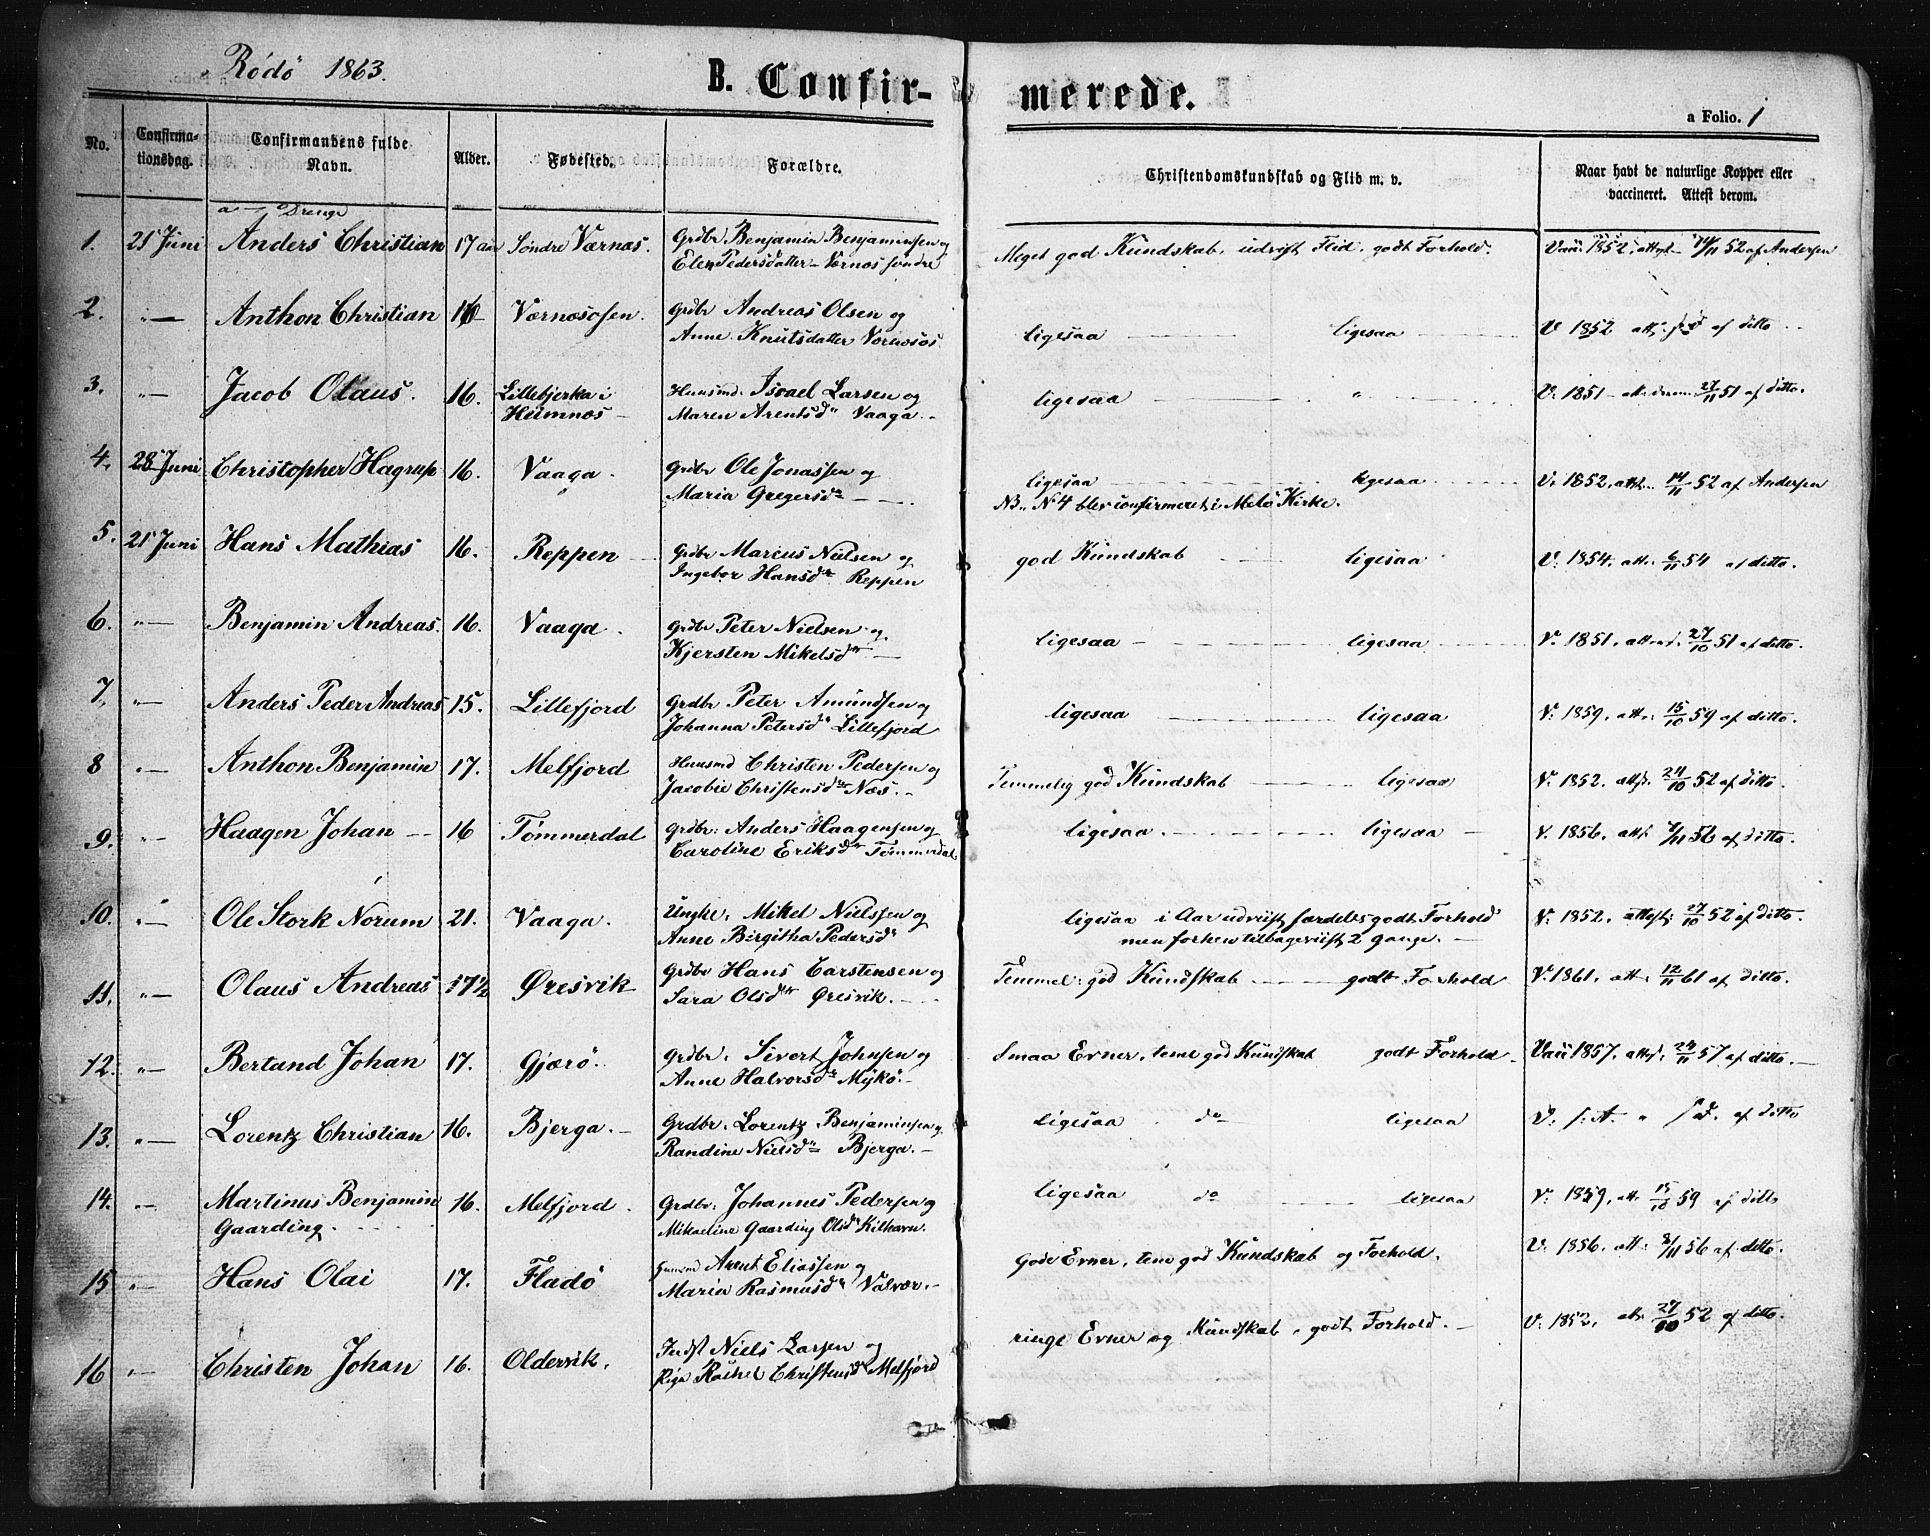 Rödö 1863.
B. Confirmerede.
a Folio. 1
No. Confirmationsdag. Confirmandens fulde Navn. Alder. Fødested. Forældre. Christendomskundskab og Flid m. v. Naar havt de naturlige Kopper eller vaccineret. Attest derom.
a — Drenge
1. 21 Juni Anders Christian 17 aar Söndre Værnæs. Grdbr Benjamin Benjaminsen og Meget god Kundskab, udviist Flid, godt Forhold. Vac: 1852, attest 52 af Andersen
Elen Pedersdatter Værnæs söndre
2. "— Anthon Christian Værnæsosen. Grdbr Andreas Olsen og ligesaa ligesaa V 1852 af ditto
Anne Knutsdatter Værnæsos
3. "— Jacob Olaus. 16. Lillebjerka i Huusmd. Israel Larsen og ligesaa " V: 1851 27/11 51 af ditto.
Humnæs — Maren Arentsdr Vaaga. —
4. 28 Juni Christopher Hagrup 16. Vaaga. Grdbr Ole Jonassen og ligesaa ligesaa V: 1852. att. 14/11 52 af Andersen
Maria Gregersdr — NB. N 4 blev confirmeret i Melö Kirke.
5. 21 Juni Hans Mathias 16. Reppen Grdbr Marcus Nielsen og god Kundskab ligesaa V: 1854. att: 6/11 54 af ditto.
Ingebor Hansdr Reppen
6. "— Benjamin Andreas. 16. Vaaga. Grdbr Peter Nielsen og ligesaa ligesaa V: 1851. 27/10 51 af ditto.
Kjersten Mikelsdr —
7. "— Anders Peder Andreas 15. Lillefjord Grdbr Peter Amundsen og ligesaa ligesaa V: 1859. att: 15/10 59 af ditto.
Johanna Petersdr Lillefjord
8 "— Anthon Benjamin 17. Melfjord Huusmd Christen Pedersen og Temmelig god Kundskab ligesaa V: 1852. 24/10 52 af ditto.
Jacobie Christensdr Næs. —
9. "— Haagen Johan — 16 Tømmerdal Grdbr: Anders Haagensen og ligesaa. ligesaa V. 1856. att: 56 af ditto.
Caroline Eriksdr Tømmerdal
10. "— Ole Stork Norum 21. Vaaga. Ungke. Mikel Nielssen og ligesaa i Aar udviist særdeles godt Forhold V: 1852. attest: 27/10 52 af ditto.
Anne Birgitha Pedersdr men forhen tilbageviist 2 gange. —
11. "— Olaus Andreas 17½ Øresvik Grdbr Hans Carstensen og Temmel: god Kundskab godt Forhold V: 1861. att: 12/11 61 af ditto.
Sara Olsdr Øresvik. —
12. "— Bertand Johan 17. Gjærö. Grdbr. Sivert Johnsen og Smaa Evner, teme god Kundskab godt Forhold. Vac: 1857. 24/11 57 af ditto. —
Anne Halvorsdr Mykö. —
13. "— Lorentz Christian 16. Bjerga. — Grdbr. Lorentz Benjaminsen og ligesaa do ligesaa V: af ditto
Randine Nielsdr Bjerga. —
14. "— Martinus Benjamin 16. Melfjord. Grdbr: Johannes Pedersen og ligesaa do ligesaa V: 1859. att: 15/10 59 af ditto
Gaarding. Mikaeline Gaarding Olsdr Kilhavn.
15 "— Hans Olai 17. Fladö Huusmd Arent Eliassen og Gode Evner, teme god Kundskab og Forhold. V: 1856. att: 56 af ditto.
Maria Rasmusdr Valvær. —
16 "— Christen Johan 16. Oldervik. Inds Niels Larsen og ringe Evner og Kundskab, godt Forhold. — V: 1852. 27/10 52 af ditto.
Pige Rachel Christensdr Melfjord